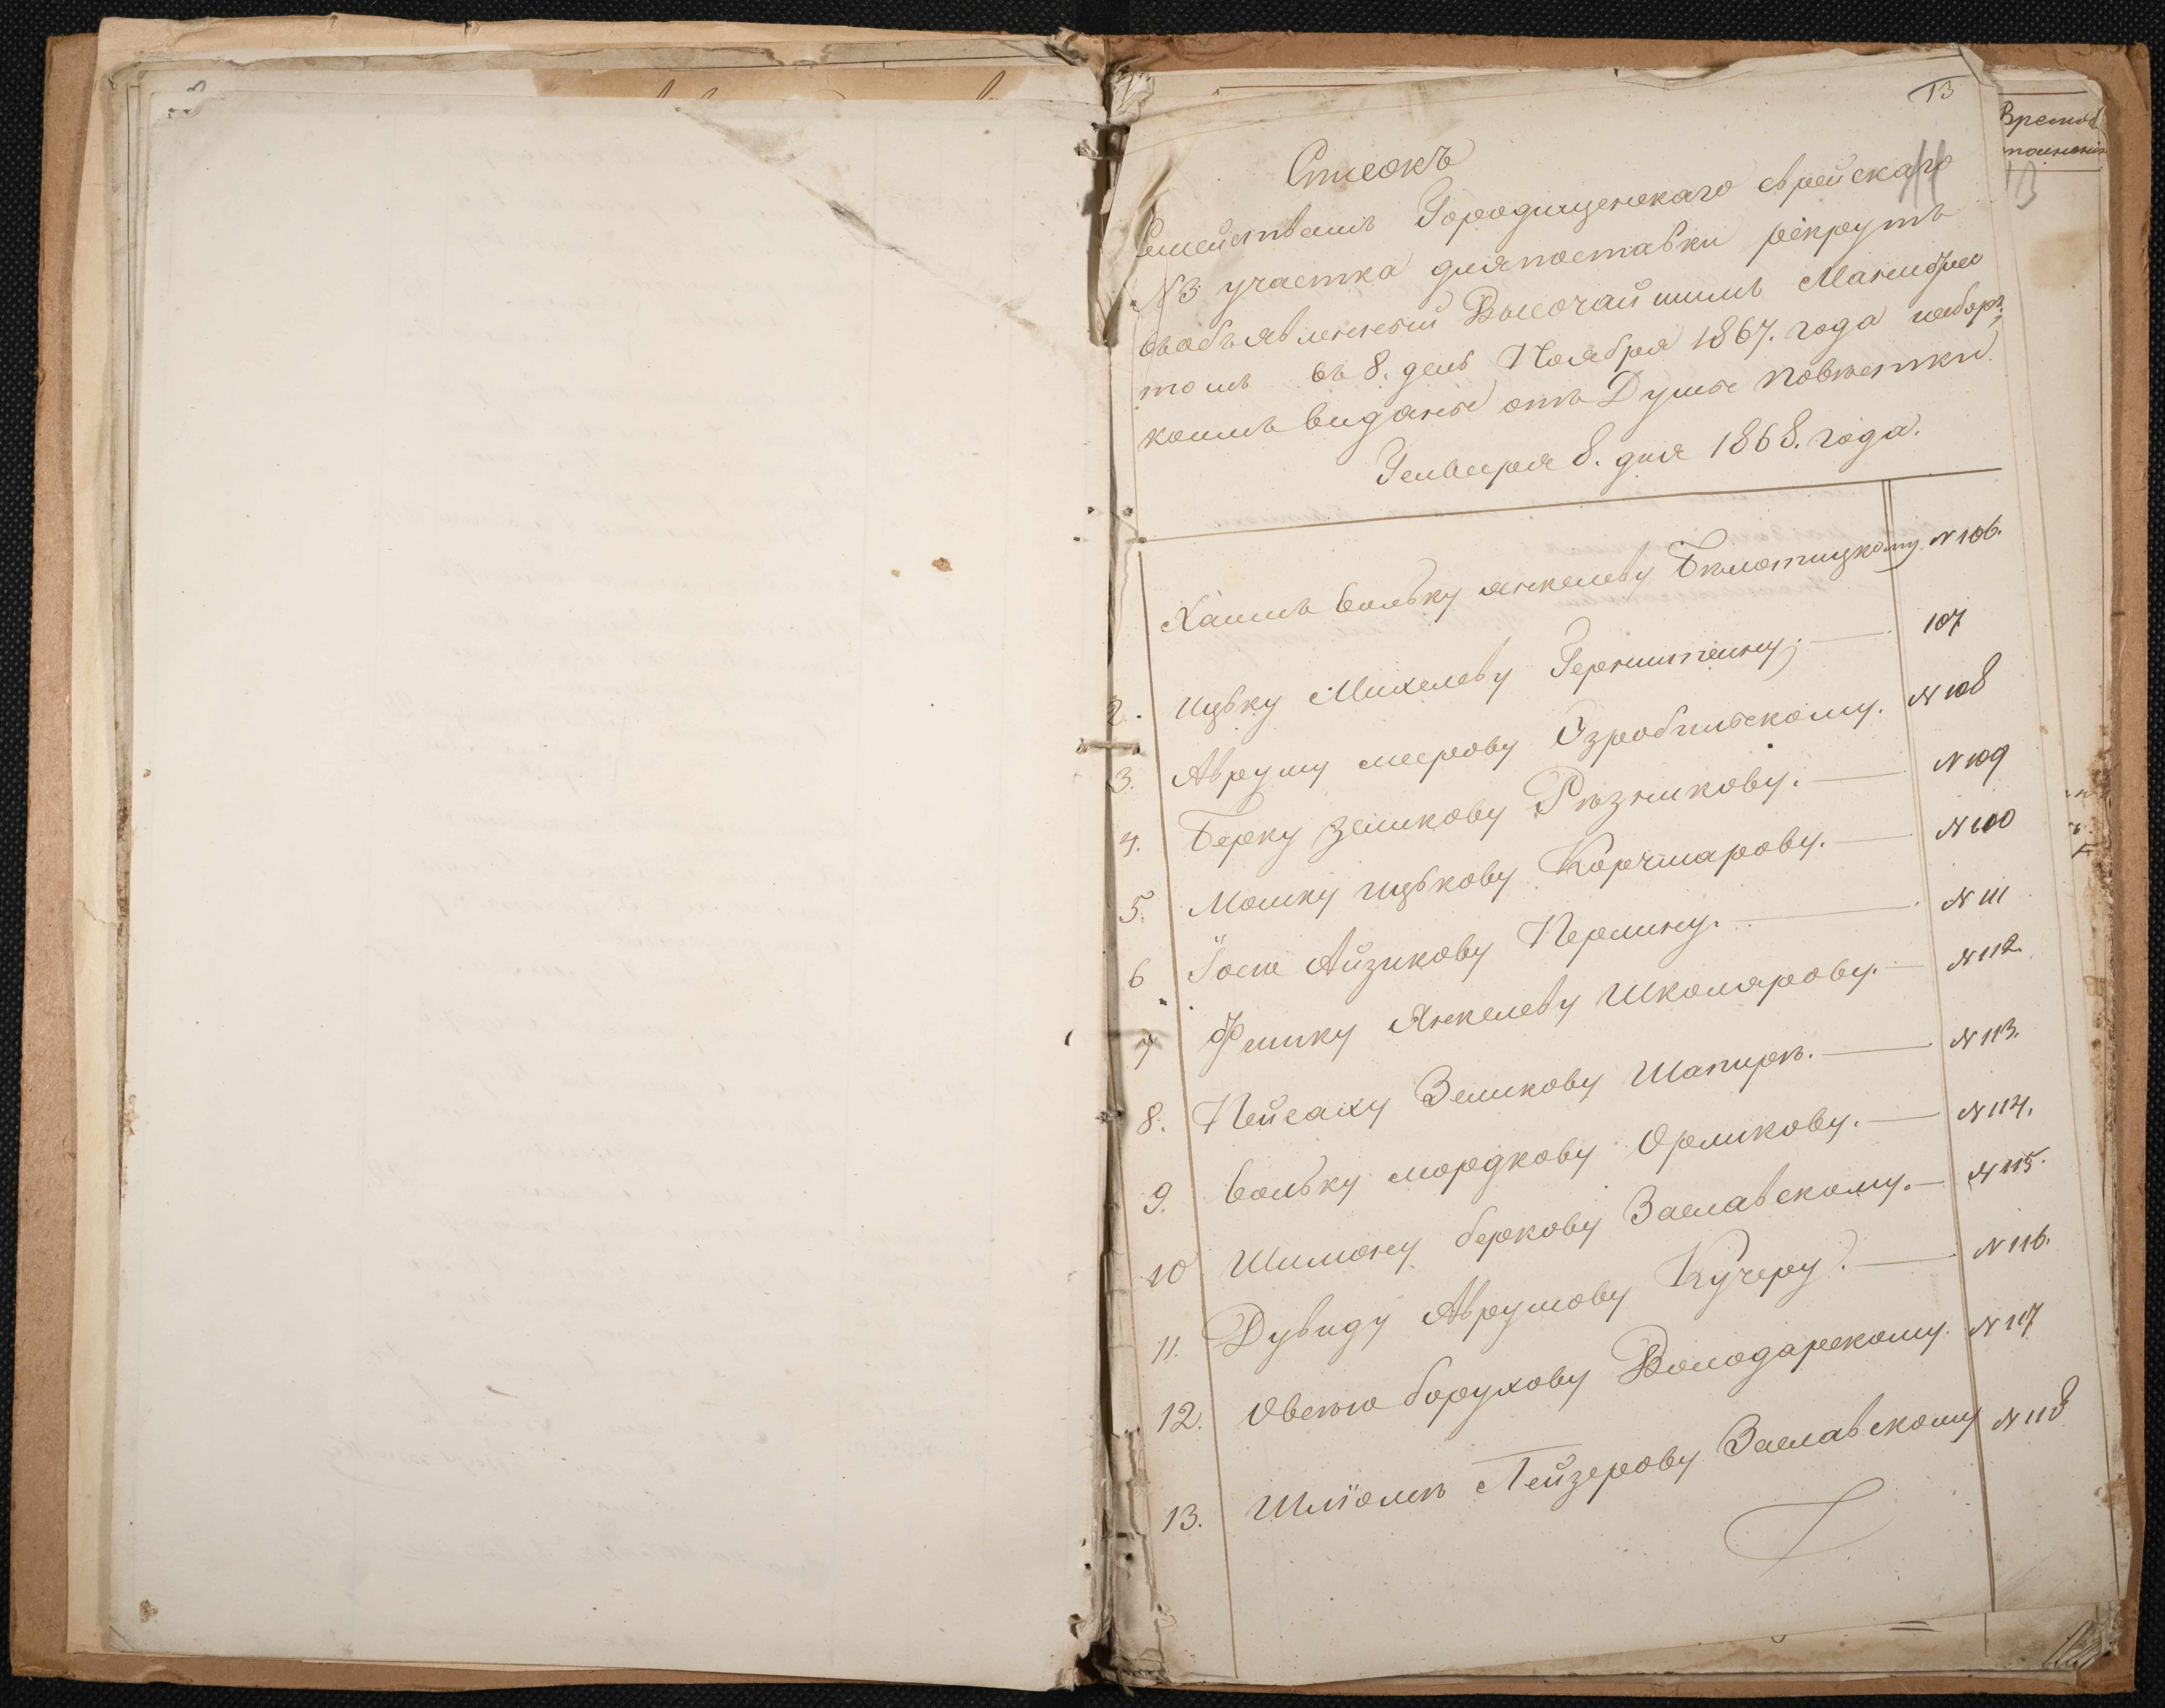 13
11
Списокъ
Семействамъ Городищенскаго еврейскаго
N 3 участка для поставки рекрутъ
въ объявленный Высочайшимъ Манифес
томъ въ 8. день Ноября 1867. года наборъ,
коимъ виданы отъ Думы повѣстки
Генваря 8. дня 1868. года.
Хаимъ Вольку Янкелеву Бѣлотицкому. N 106.
2. Ицьку Михелеву Гернштейну; 107
3. Авруму меерову Озробильскому. N 108
4. Берку Зеликову Рѣзникову. N 109
5. Мошку ицькову Корчмарову. N 100
6 Іосю Айзикову Перлину. N 111
7 Фишку Янкелеву Школярову. N 112.
8. Пейсаху Зеликову Шапирѣ. N 113.
9. Вольку мордкову Орликову. N 114.
10 Шимону беркову Заславскому. N 115.
11. Дувиду Аврумову Кучеру. N 116.
12. Овсѣю борухову Володарскому. N 117
13. Шліомѣ Лейзерову Заславскому N 118
Время
13